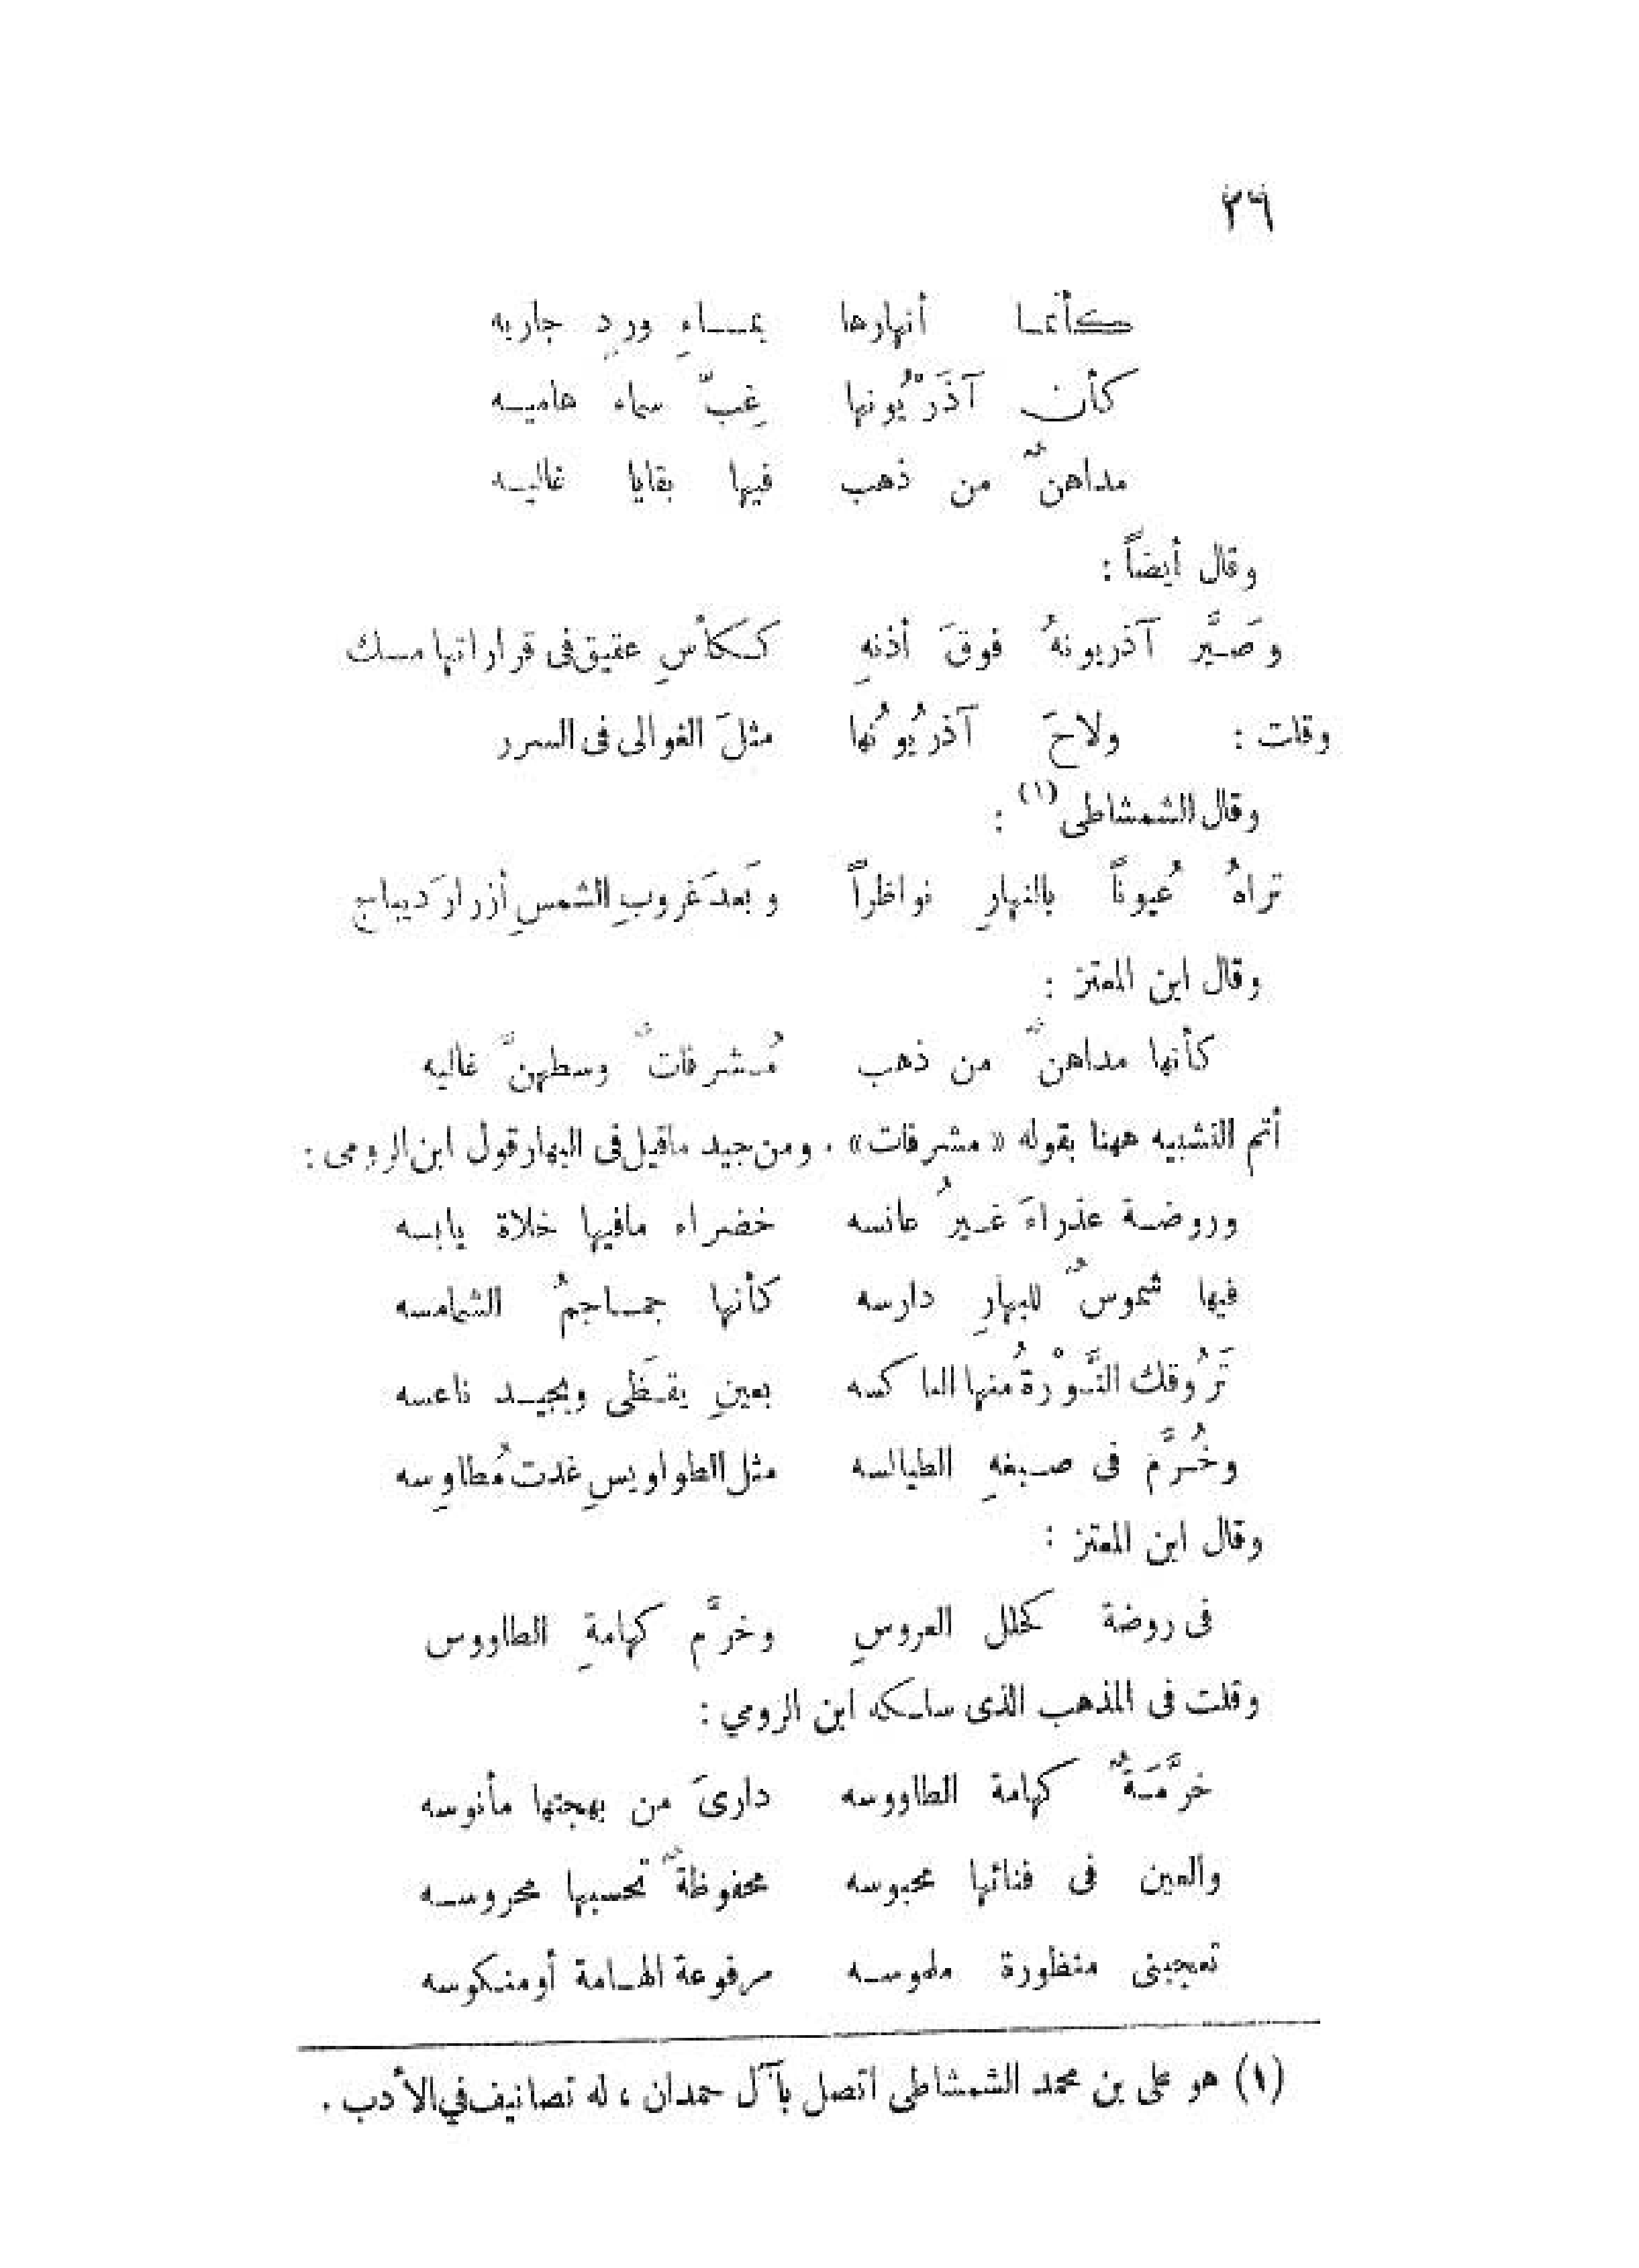 ٢٦
كأنما أنهارها بمـاءِ وردٍ جاريه
كأن آذَرْيُونها غِبَّ سماء هاميـه
مداهنٌ من ذهب فيها بقايا غاليـه
وقال أيضاً :
وصَيَّر آذريونهُ فوقَ أذنهِ ككأسِ عقيق فى قراراتها مسك
وقلت : ولاحَ آذرُيُونُها مثلَ الغوالى فى السرر
وقال الشمشاطى (١) :
تراهُ عُيوناً بالنهارِ نواظراً وبَعدَ غروبِ الشمسِ أزرارَ ديباج
وقال ابن المعتز :
كأنها مداهنٌ من ذهب مُشرفاتٌ وسطهنَّ غاليه
أتم التشبيه ههنا بقوله « مشرفات » . ومن جيد ماقيل فى البهار قول ابن الرومى :
وروضة عذراءَ غيرُ عانسه خضراء مافيها خلاة يابسه
فيها شموسٌ للبهارِ دارسه كأنها جماجمُ الشمامسه
تَرُوقك النَّوْرةُ منها الناكسه بعينِ يقظَى وبجيد ناعسه
وخُرَّم فى صبغهِ الطيالسه مثل الطواويسِ غدت مُطاوِسه
وقال ابن المعتز :
فى روضة كحلل العروسِ وخرَّم كهامةِ الطاووس
وقلت فى المذهب الذى سلكه ابن الرومي :
خرَّمَةٌ كهامة الطاووسه دارىَ من بهجتها مأنوسه
والعين فى فنائها محبوسه محفوظةٌ تحسبها محروسه
تعجبنى منظورة ملموسه مرفوعة الهامة أو منكوسه
(١) هو على بن محمد الشمشاطى اتصل بآل حمدان ، له تصانيف في الأدب .